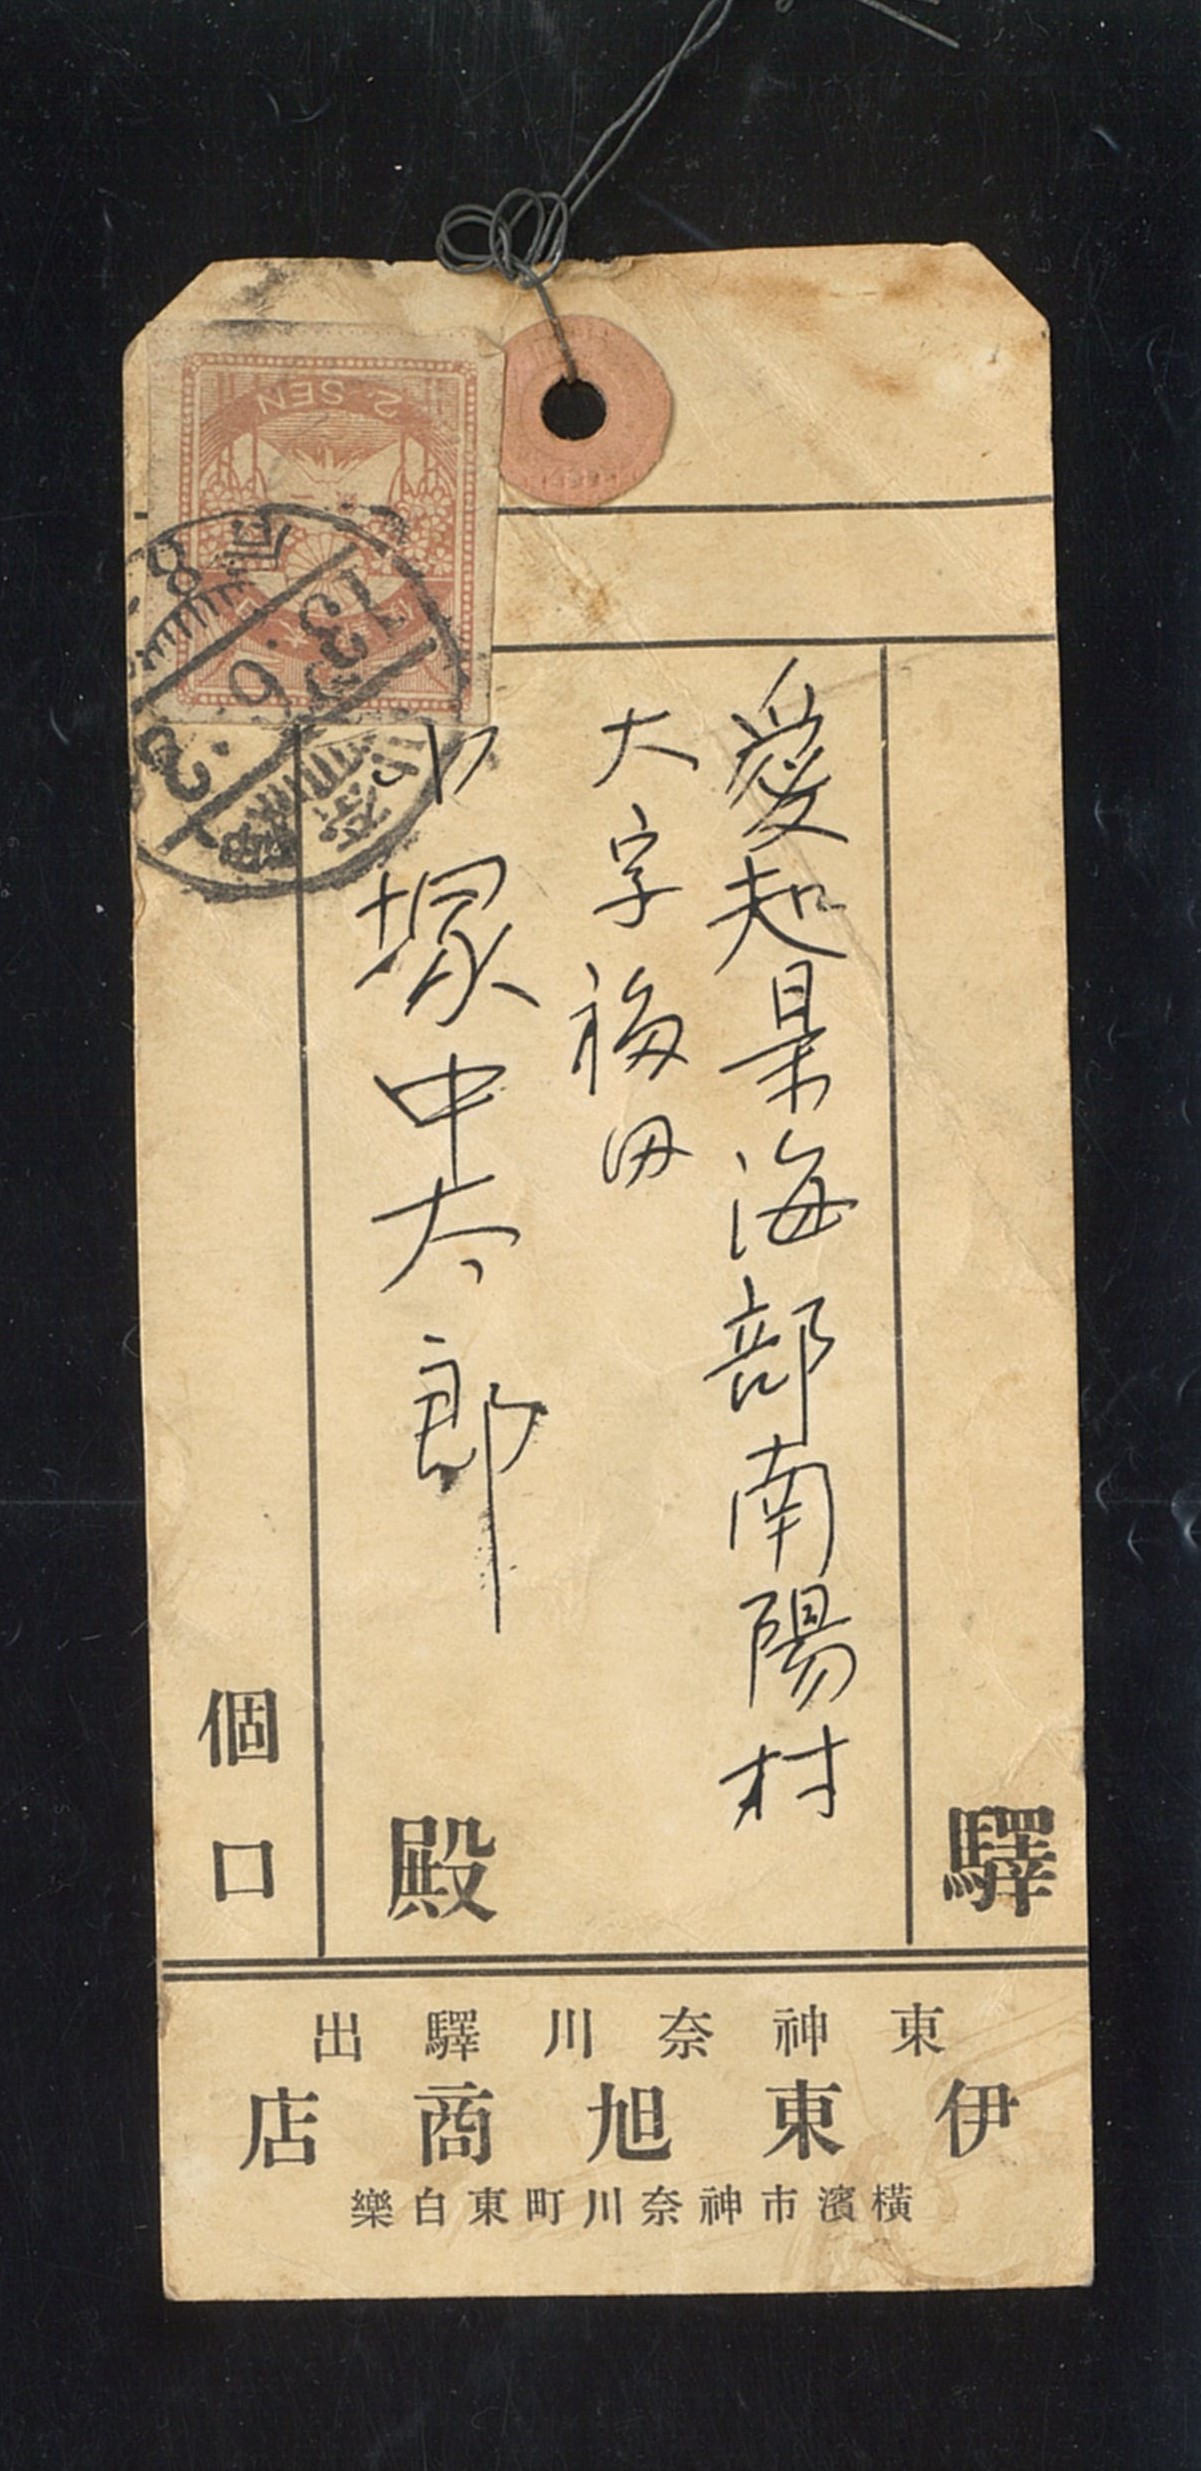 驛
愛知县海部南陽村
大字福田
塚中太郎
殿
個口
東神奈川驛出
伊東旭商店
橫濱市神奈川町東白樂
2 SEN
13.6.3